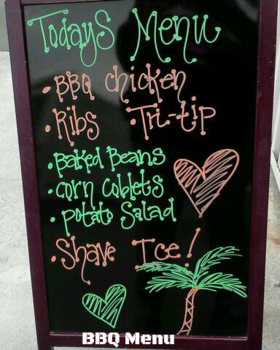 Todays Menu
• BBQ chicken
• Ribs • Tri-tip
• Baked Beans
• corn coblets
• potato Salad
• Shave Ice!
BBQ Menu